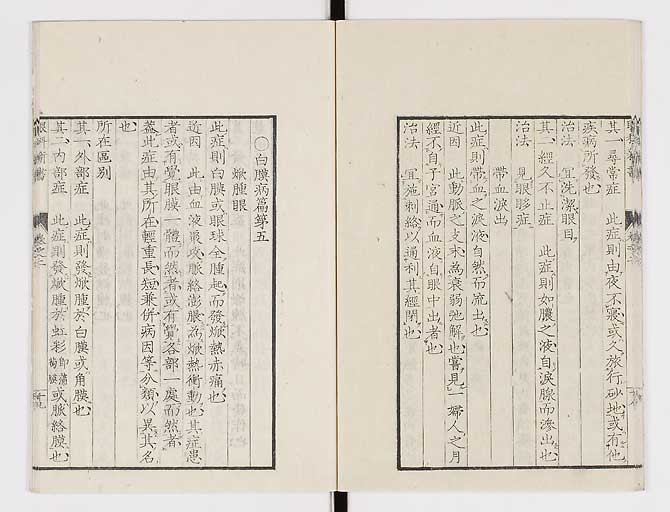 其一尋常症 此症則由夜不寢或久旅行砂地或有他
疾病所發也
治法 宜洗潔眼目
其一經久不止症 此症則如膿之液自淚腺而滲出也
治法 見眼眵症
帶血淚出
此症則帶血之淚液自然而流出也
近因 此動脈之支末為衰弱弛解也嘗見一婦人之月
經不自子宮通而血液自眼中出者也
治法 宜施刺絡以通利其經閉也
○白膜病篇第五
焮腫眼
此症則白膜或眼球全腫起而發焮熱赤痛也
近因 此由血液最攻脈絡膨脹為焮熱衝動也其症患
者或有嘗眼膜一體而然者或有嘗各部一處而然者
蓋此症由其所在輕重長短兼併病因等分類以異其名
也
所在區別
其一外部症 此症則發焮腫於白膜或角膜也
其一內部症 此症則發焮腫於虹彩即葡萄膜或脈絡膜也